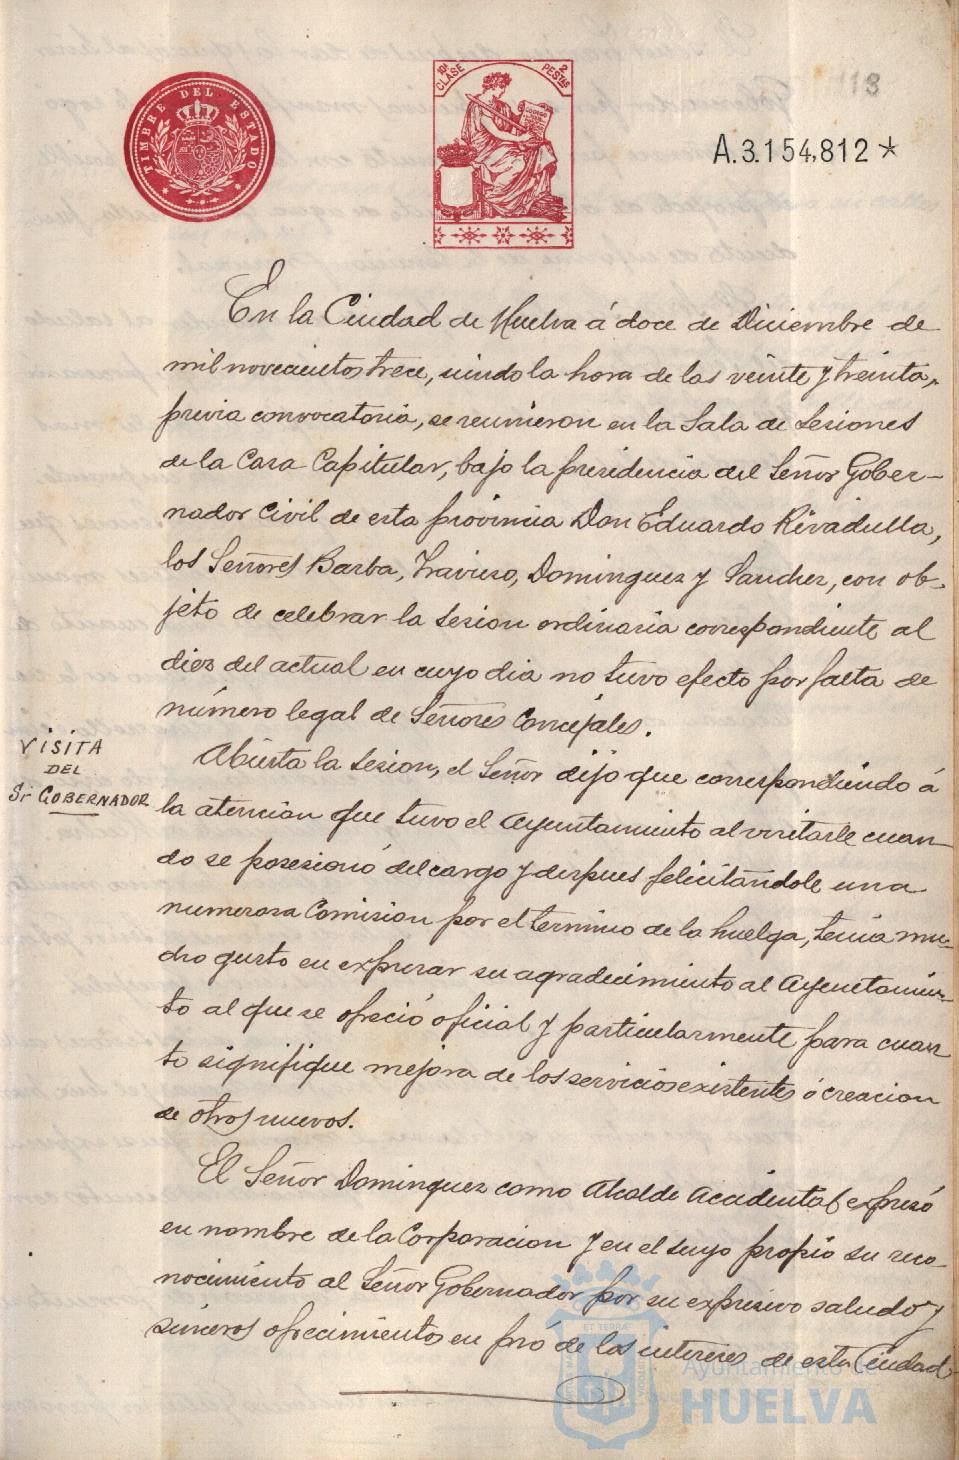 118
TIMBRE DEL ESTADO
10ª CLASE
2 PESTAS
A.3.154,812*
En la Ciudad de Huelva á doce de Diciembre de
mil novecientos trece, siendo la hora de las veinte y treinta,
previa convocatoria, se reunieron en la Sala de Sesiones
de la Casa Capitular, bajo la presidencia del Señor Gober-
nador Civil de esta provincia Don Eduardo Rivadulla,
los Señores Barba, Travieso, Dominguez y Sanchez, con ob-
jeto de celebrar la sesion ordinaria correspondiente al
diez del actual en cuyo dia no tuvo efecto por falta de
número legal de Señores Concejales.
VISITA
DEL
Sr GOBERNADOR
Abierta la sesion, el Señor dijo que correspondiendo á
la atencion que tuvo el Ayuntamiento al visitarle cuan-
do se posesionó del cargo y despues felicitándole una
numerosa Comision por el termino de la huelga, tenia mu-
cho gusto en expresar su agradecimiento al Ayuntamien-
to al que se ofreció oficial y particularmente para cuan
to signifique mejora de los servicios existentes ó creacion
de otros nuevos.
El Señor Dominguez como Alcalde Accidental expresó
en nombre de la Corporacion y en el suyo propio su reco-
nocimiento al Señor Gobernador por su expresivo saludo y
sinceros ofrecimientos en pró de los intereses de esta Ciudad
Ayuntamiento de
HUELVA